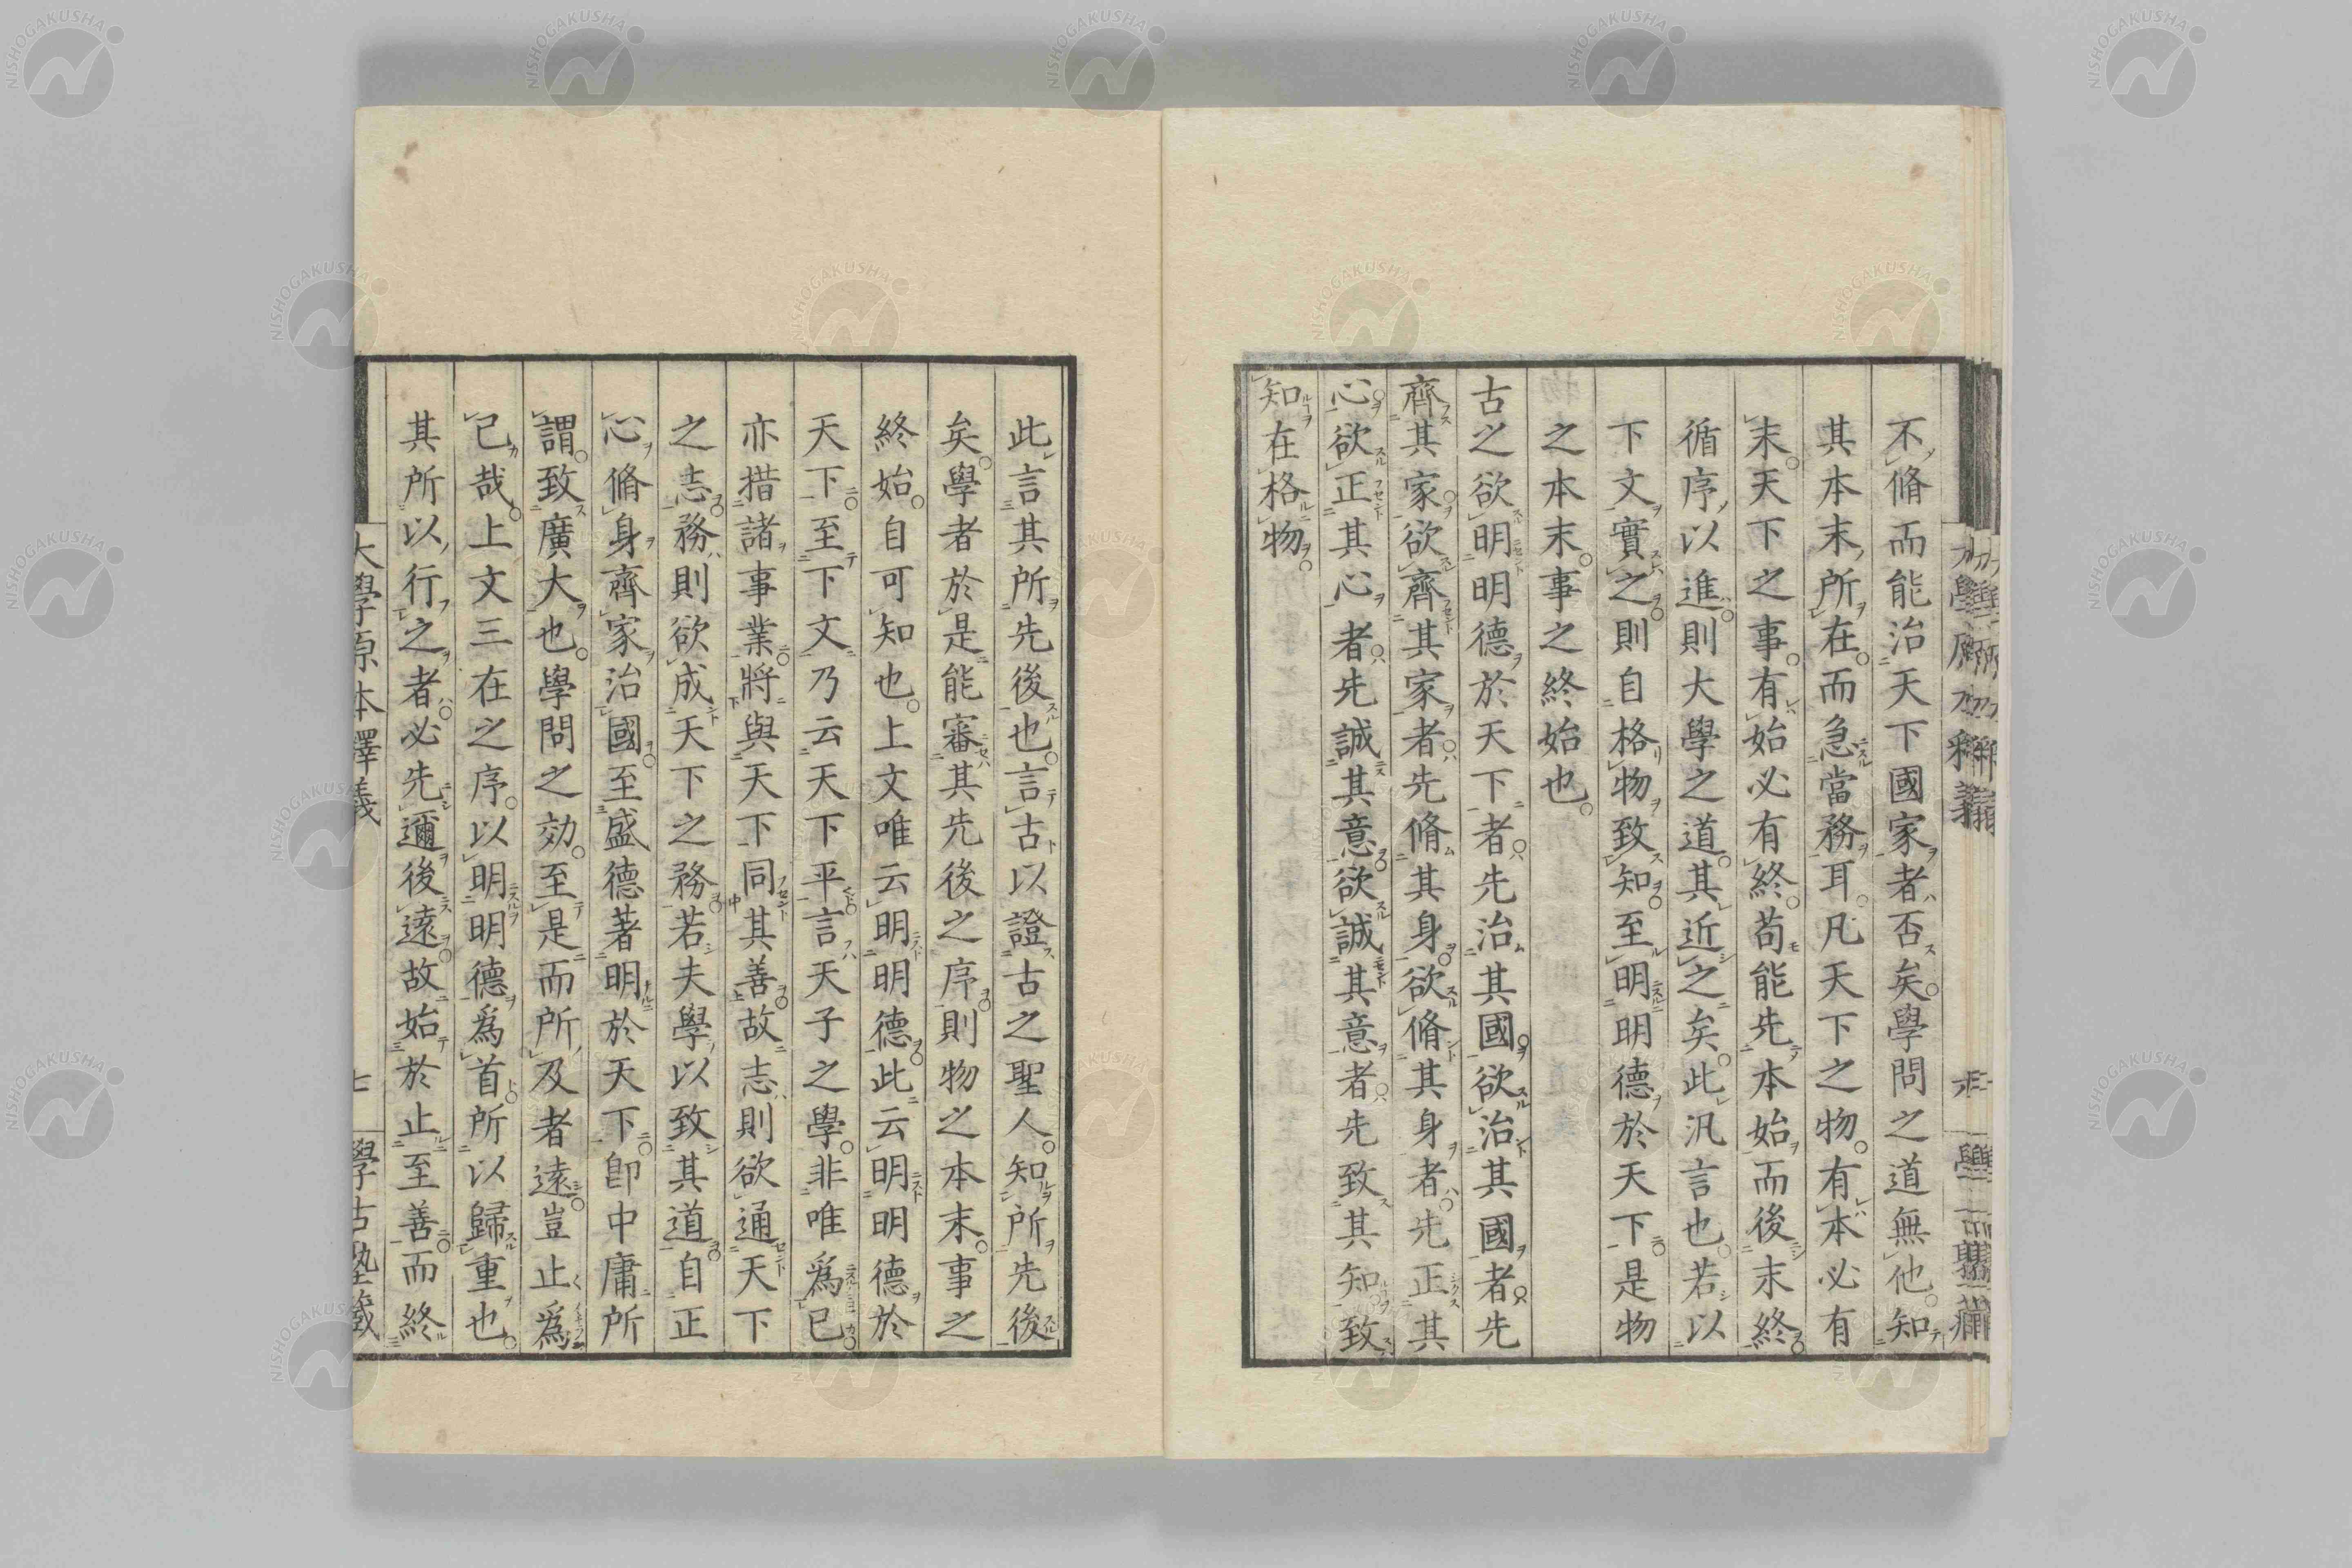 不脩而能治天下國家者否矣。學問之道無他。知
其本末所在。而急當務耳。凡天下之物。有本必有
末。天下之事。有始必有終。苟能先本始而後末終。
循序以進。則大學之道。其近之矣。此汎言也。若以
下文實之。則自格物致知。至明明德於天下。是物
之本末。事之終始也。
古之欲明明德於天下者。先治其國。欲治其國者。先
齊其家。欲齊其家者。先脩其身。欲脩其身者。先正其
心。欲正其心者。先誠其意。欲誠其意者。先致其知。致
知在格物。
此言其所先後也。言古以證古之聖人。知所先後
矣。學者於是能審其先後之序。則物之本末。事之
終始。自可知也。上文唯云明明德。此云明明德於
天下。至下文乃云天下平。言天子之學。非唯爲已。
亦措諸事業。將與天下同其善。故志則欲通天下
之志。務則欲成天下之務。若夫學以致其道。自正
心脩身齊家治國。至盛德著明於天下。卽中庸所
謂。致廣大也。學問之効。至是而所及者遠。豈止爲
已哉。上文三在之序。以明明德爲首。所以歸重也。
其所以行之者。必先邇後遠。故始於止至善。而終
大學原本釋義
七
學古塾藏
NISHOGAKUSHA